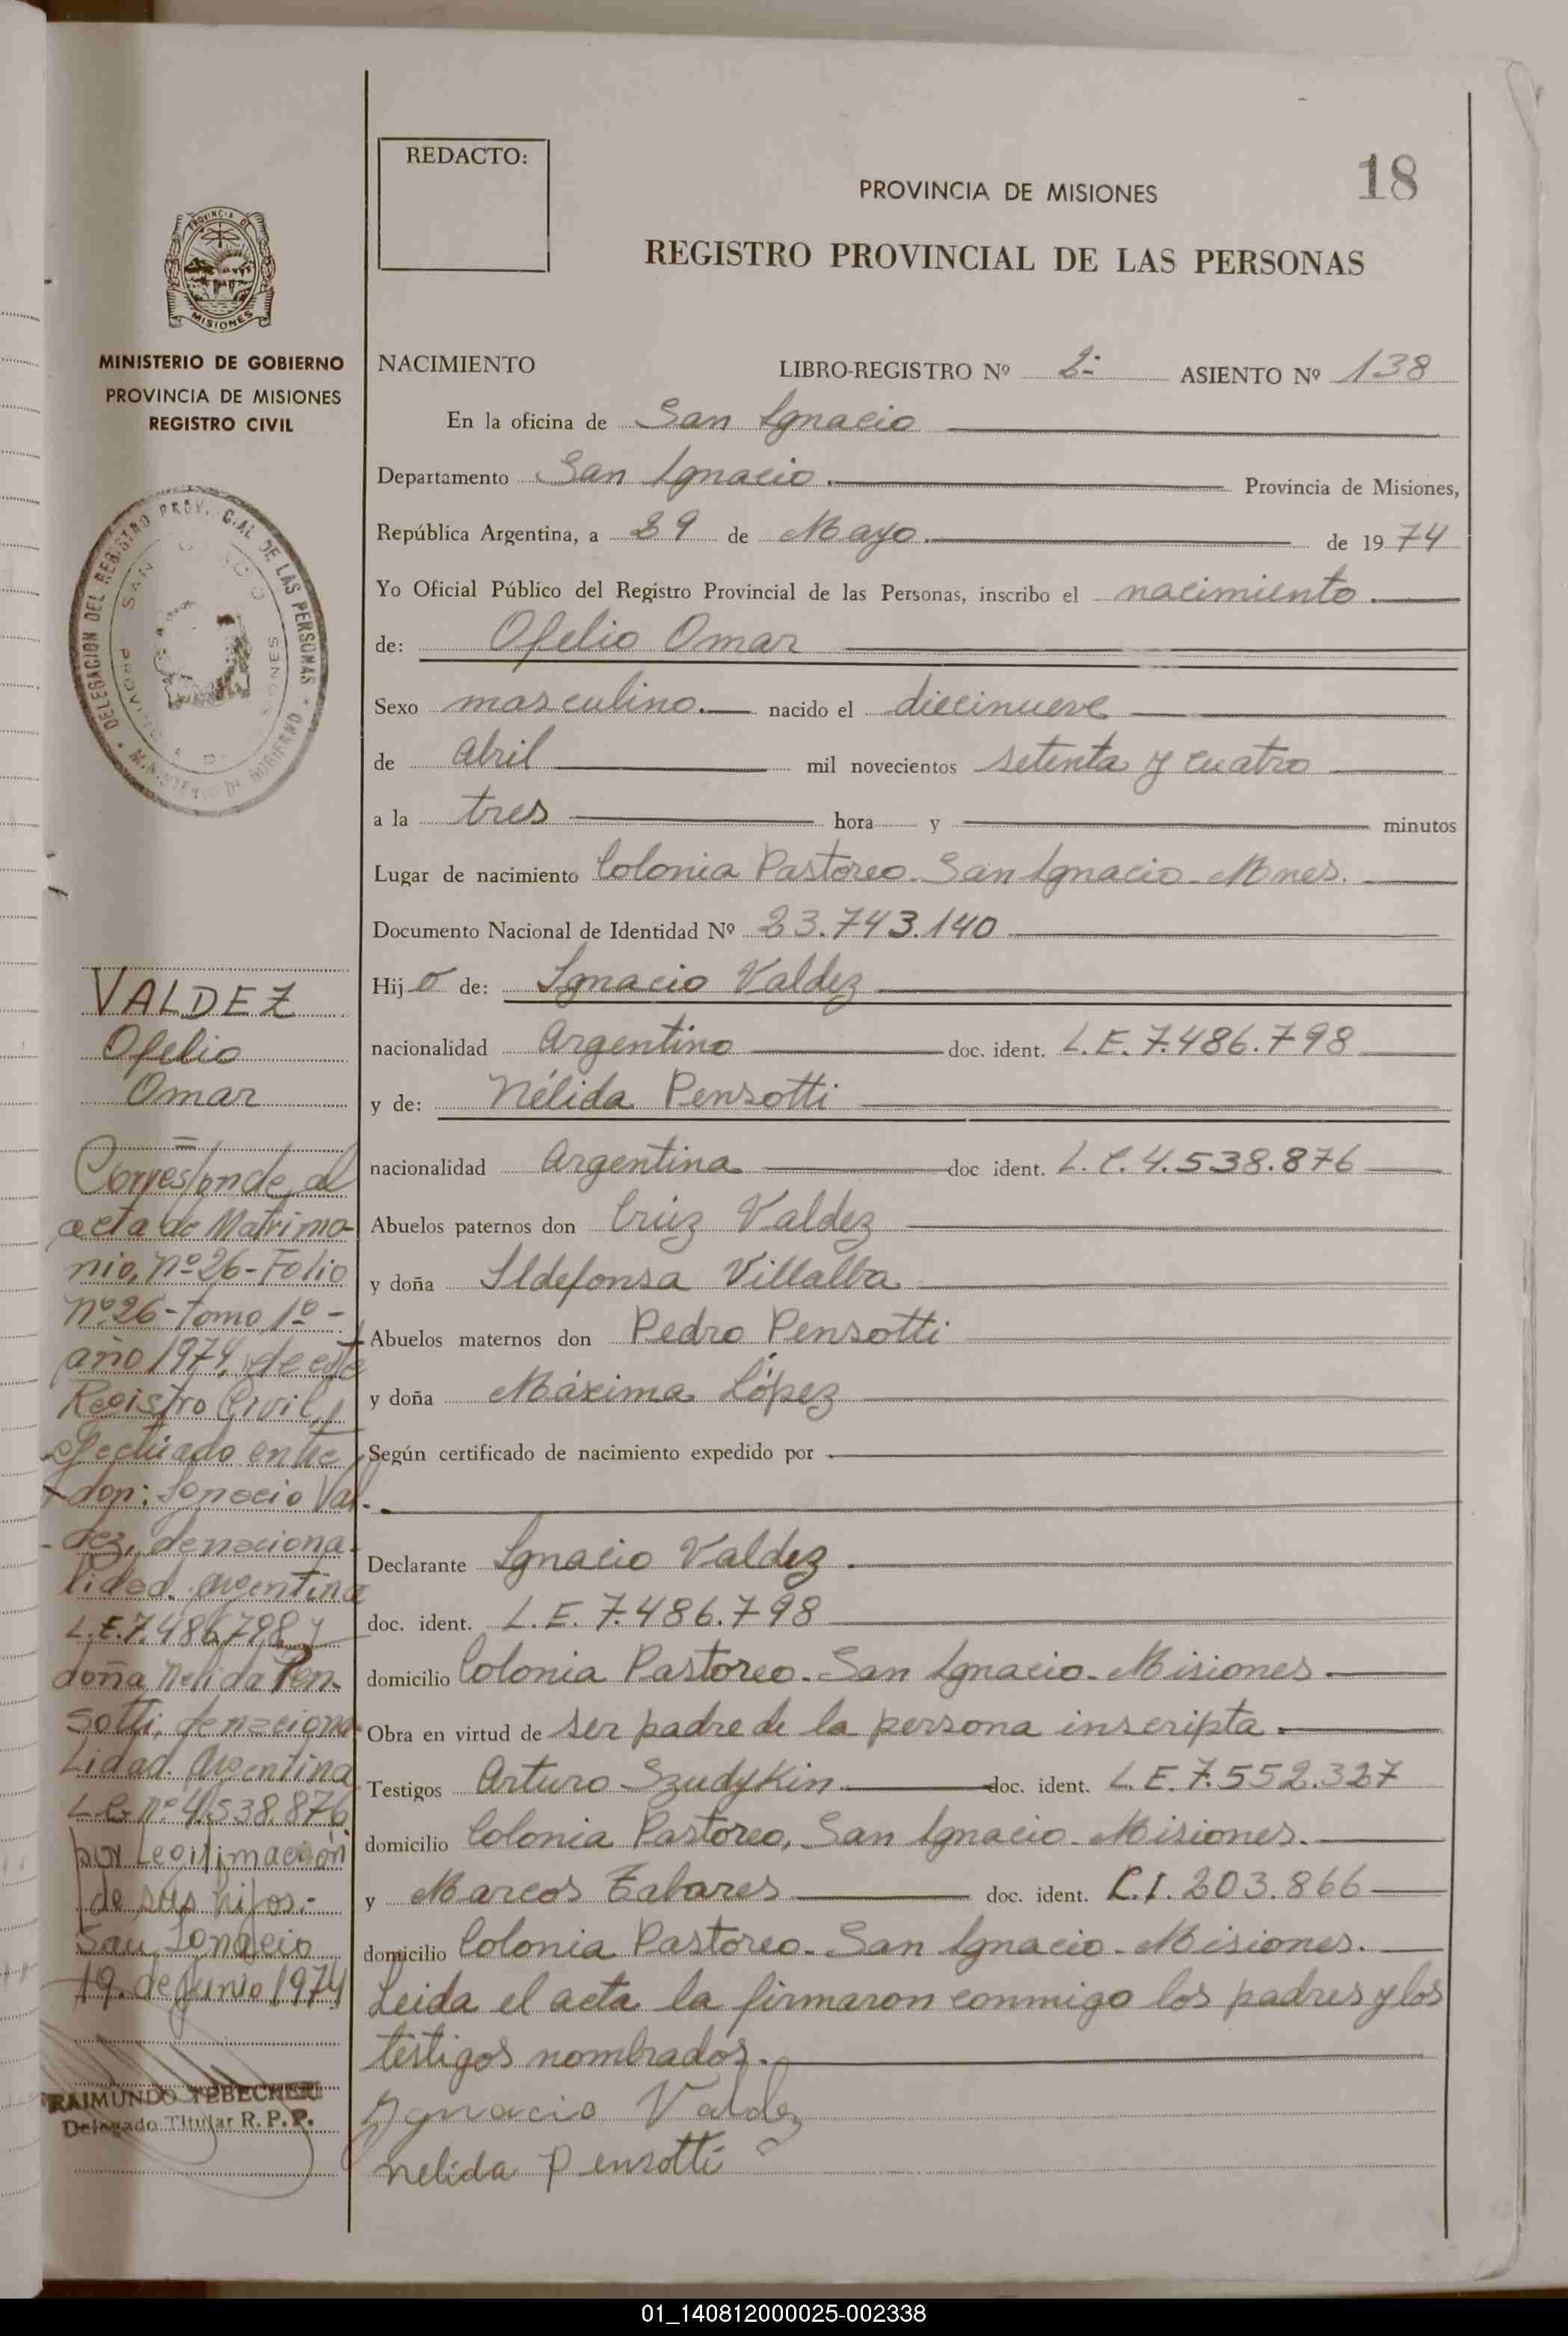 REDACTO:
PROVINCIA DE MISIONES
18
REGISTRO PROVINCIAL DE LAS PERSONAS
PROVINCIA DE
MISIONES
MINISTERIO DE GOBIERNO
PROVINCIA DE MISIONES
REGISTRO CIVIL
DELEGACION DEL REGISTRO PROV. C.AL DE LAS PERSONAS
SAN
MINISTERIO DE GOBIERNO
VALDEZ
Ofelio
Omar
=
Corresponde al
acta de Matrimo-
nio, nº 26 - Folio
nº 26 - tomo 1º -
año 1974, de este
Registro Civil,
efectuado entre
don: Ignacio Val-
dez, de naciona-
lidad argentina
L.E. 7.486.798 y
doña Nelida Pen-
sotti, de naciona-
Lidad Argentina
L.C. nº 4.538.876
por Legitimación
de sus hijos.-
San Ignacio
19 de Junio 1974
RAIMUNDO TEBECHERI
Delegado Titular R. P. P.
NACIMIENTO LIBRO-REGISTRO Nº 2º ASIENTO Nº 138
En la oficina de San Ignacio
Departamento San Ignacio. Provincia de Misiones,
República Argentina, a 29 de Mayo. de 1974
Yo Oficial Público del Registro Provincial de las Personas, inscribo el nacimiento.
de: Ofelio Omar
Sexo masculino. nacido el diecinueve
de abril mil novecientos setenta y cuatro
a la tres hora y minutos
Lugar de nacimiento Colonia Pastoreo - San Ignacio - Mnes.
Documento Nacional de Identidad Nº 23.743.140
Hijo de: Ignacio Valdez
nacionalidad Argentino doc. ident. L.E. 7.486.798
y de: Nélida Pensotti
nacionalidad Argentina doc ident. L.C. 4.538.876
Abuelos paternos don Cruz Valdez
y doña Ildefonsa Villalba
Abuelos maternos don Pedro Pensotti
y doña Máxima López
Según certificado de nacimiento expedido por
Declarante Ignacio Valdez.
doc. ident. L.E. 7.486.798
domicilio Colonia Pastoreo - San Ignacio - Misiones.
Obra en virtud de ser padre de la persona inscripta.
Testigos Arturo Szudykin doc. ident. L.E. 7.552.327
domicilio Colonia Pastoreo, San Ignacio - Misiones.
y Marcos Tabares doc. ident. C.I. 203.866
domicilio Colonia Pastoreo - San Ignacio - Misiones.
Leida el acta la firmaron conmigo los padres y los
testigos nombrados.
Ygnacio Valdez
nelida Pensotti
01_140812000025-002338